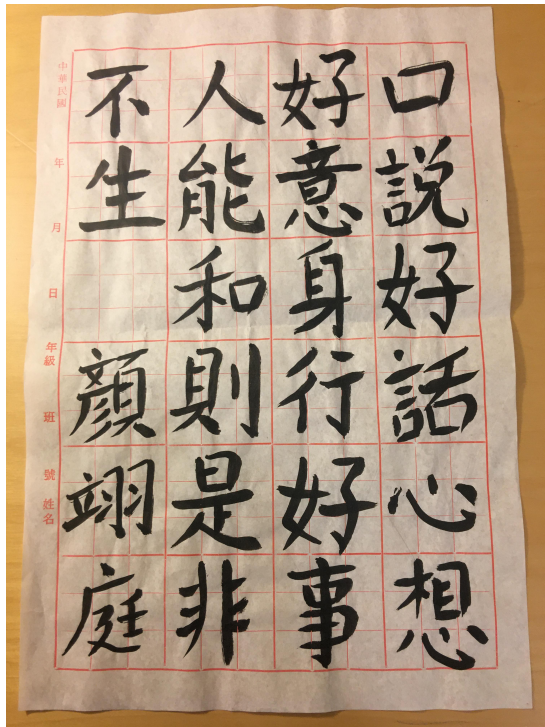 口說好話心想
好意身行好事
人能和則是非
不生 顏翊庭
中華民國 年 月 日 年級 班 號 姓名